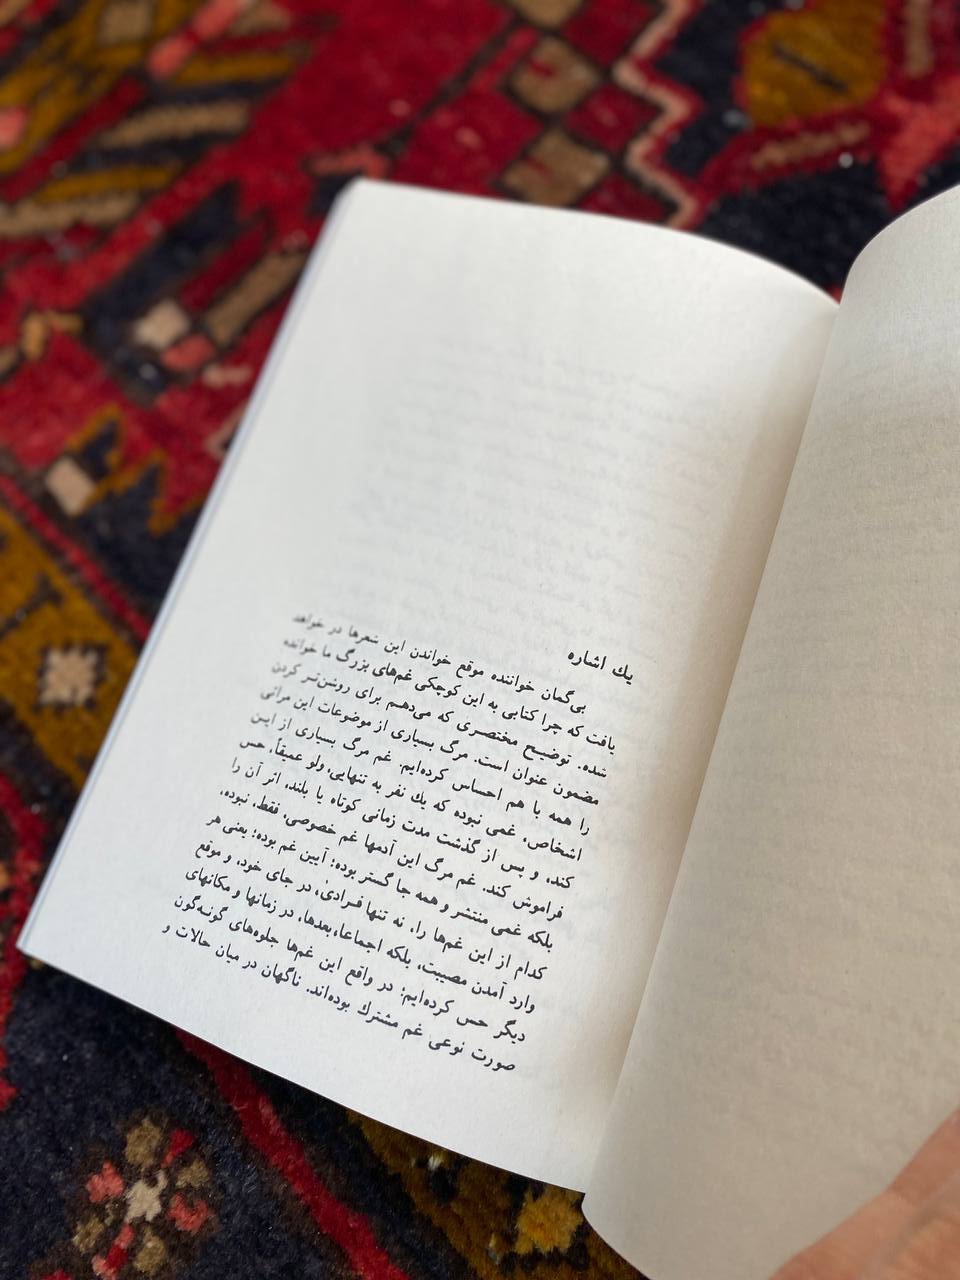 يك اشاره
بی‌گمان خواننده موقع خواندن این شعرها در خواهد
یافت که چرا کتابی به این کوچکی غم‌های بزرگ ما خوانده
شده. توضیـح مختصـری که می‌دهـم برای روشن‌تـر کردن
مضمون عنوان است. مرگ بسیاری از موضوعات این مراثی
را همه با هم احساس کرده‌ایم. غم مرگ بسیاری از ایـن
اشخاص، غمی نبوده که يك نفر به تنهایی، ولو عمیقاً، حس
کند، و پس از گذشت مدت زمانی کوتاه یا بلند، اثر آن را
فراموش کند. غم مرگ این آدمها غم خصوصی، فقط، نبوده،
بلکه غمی منتشر و همه جا گستر بوده؛ آیین غم بوده؛ یعنی هر
کدام از این غم‌ها را، نه تنها فـرادیٰ، در جای خود، و موقع
وارد آمدن مصیبت، بلکه اجماعا، بعدها، در زمانها و مکانهای
دیگر حس کرده‌ایم؛ در واقع این غم‌ها جلوه‌های گونـه‌گون
صورت نوعی غم مشترك بوده‌اند. ناگهان در میان حالات و